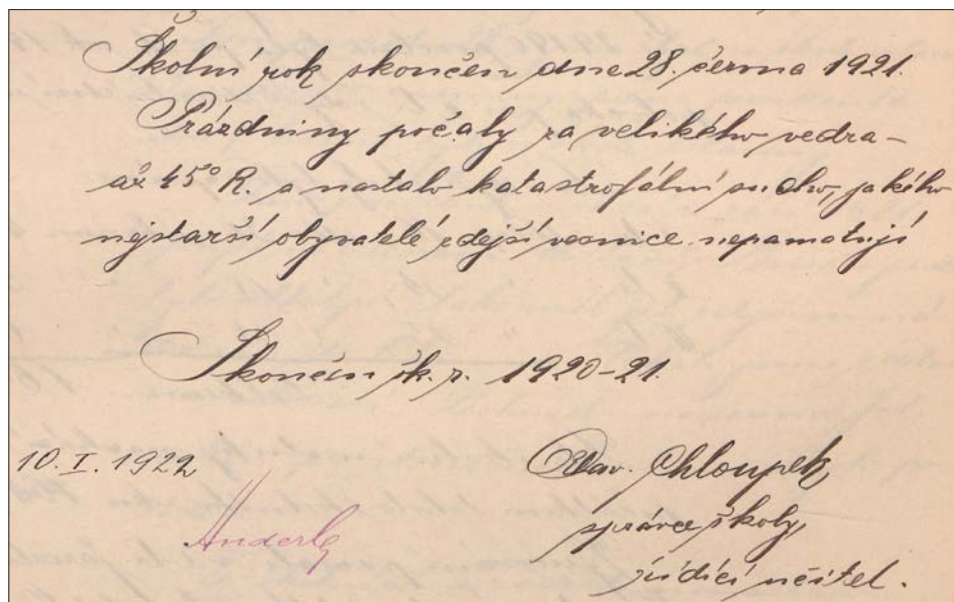 Školní rok skončen dne 28. června 1921.
Prázdniny počaly za velikého vedra –
až 45° R. a nastalo katastrofální sucho, jakého
nejstarší obyvatelé zdejší vesnice nepamatují
Skončen šk. r. 1920-21.
10. I. 1922
Chloupek,
Anderle
správce školy,
řídící učitel.